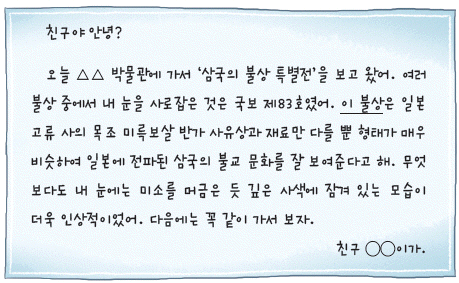 친구야 안녕?
오늘 △△ 박물관에 가서 ‘삼국의 불상 특별전’을 보고 왔어. 여러
불상 중에서 내 눈을 사로잡은 것은 국보 제83호였어. 이 불상은 일본
고류 사의 목조 미륵보살 반가 사유상과 재료만 다를 뿐 형태가 매우
비슷하여 일본에 전파된 삼국의 불교 문화를 잘 보여준다고 해. 무엇
보다도 내 눈에는 미소를 머금은 듯 깊은 사색에 잠겨 있는 모습이
더욱 인상적이었어. 다음에는 꼭 같이 가서 보자.
친구 ○○이가.